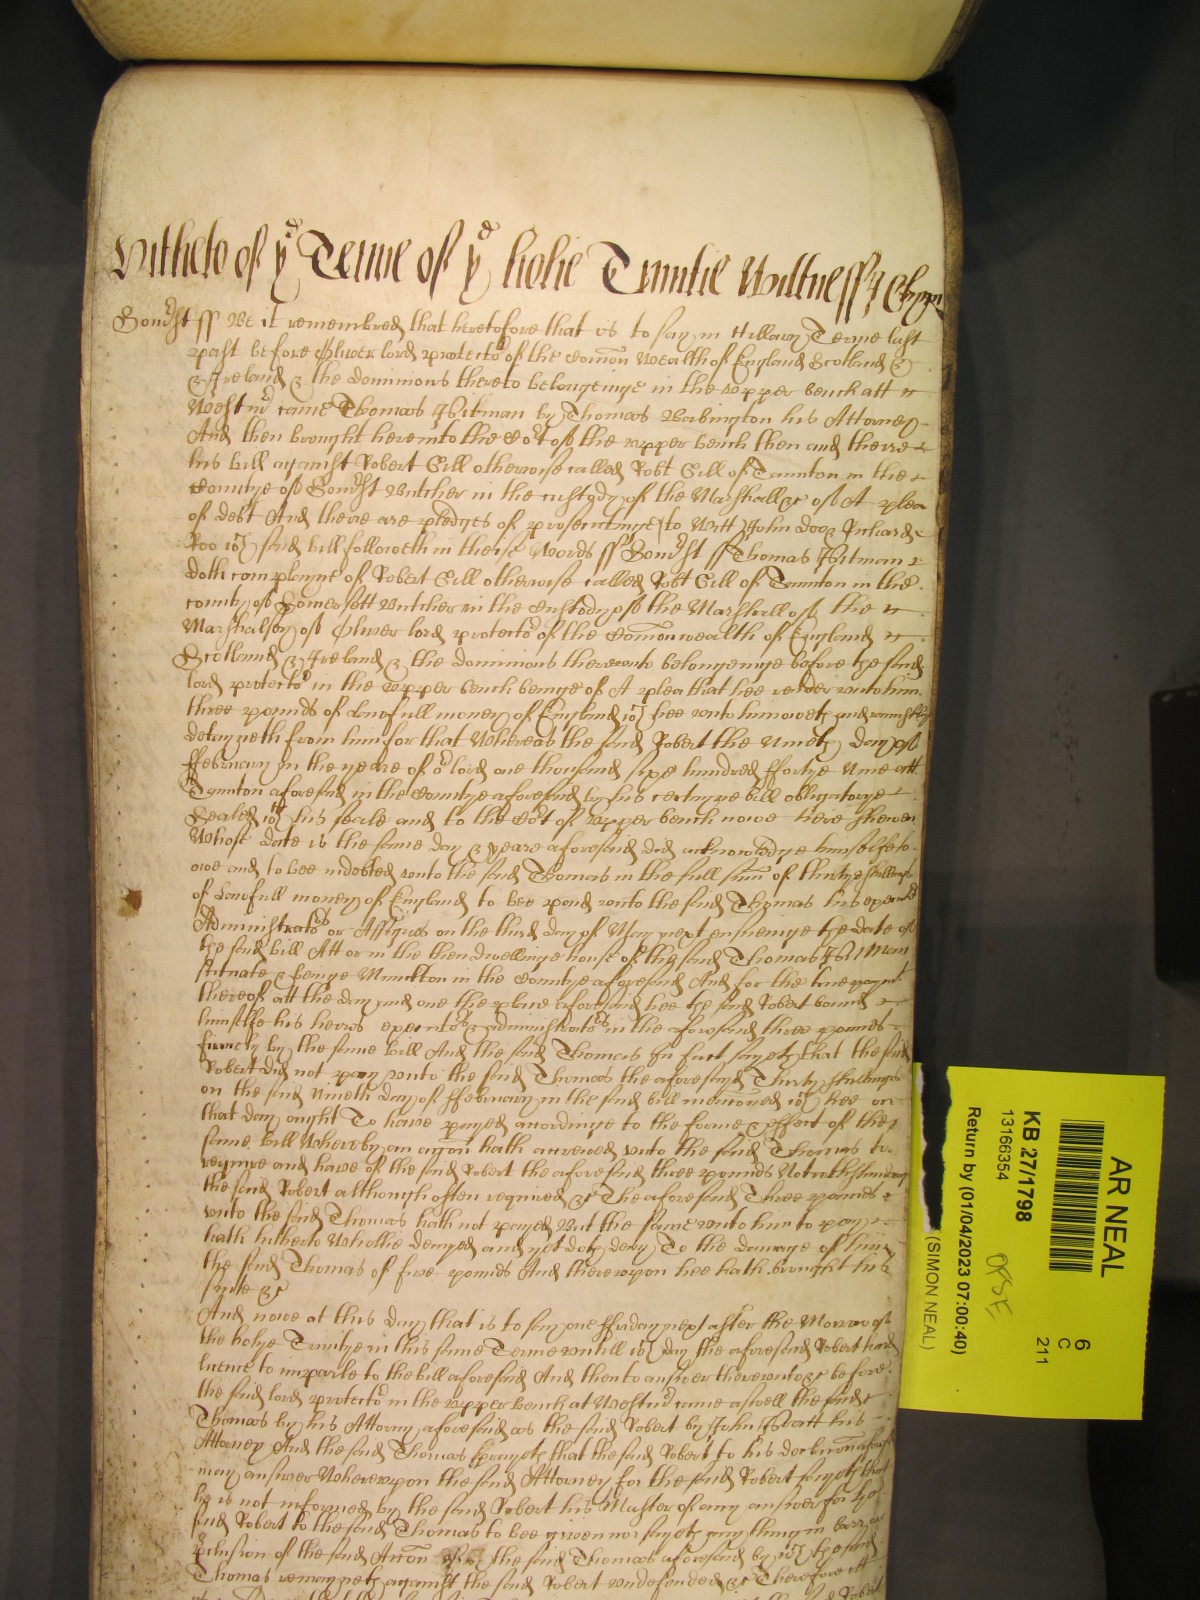 Hitherto of ye Terme of ye holie Trinitie Wittness
Somst ss Be it remembred that heretofore that is to say in Hillary Terme last
past before Oliver lord protector of the Comon Wealth of England Scotland &
& Ireland & the dominions thereto belongeinge in the upper bench att
Westmr came Thomas Pitman by Thomas Warbington his Attorney
And then brought here into the Cort of the upper bench then and there
his bill against Robert Gill otherwise called Robt Gill of Taunton in the
Countye of Somst Butcher in the custody of the Marshall &c of A plea
of debt And there are pledges of prosecutinge to Witt John Doo & Richard
Roo wch said bill followeth in theise Words ss Somst ss Thomas Pitman
doth complayne of Robert Gill otherwise called Robt Gill of Taunton in the
county of Somersett Butcher in the Custody of the Marshall of the
Marshalsey of Oliver lord protector of the Comonwealth of England
Scotland & Ireland & the dominions thereunto belongeinge before the said
lord protector in the upper bench beinge of A plea that hee render unto him
three pounds of Lawfull money of England wch hee unto him oweth and uniustly
detayneth from him for that Whereas the said Robert the Nineth day of
ffebruary in the yeare of or lord one thousand sixe hundred ffortye Nine att
Taunton aforesaid in the Countye aforesaid by his certayne bill obligatorye
Sealed wth his seale and to the Cort of upper bench nowe here shewen
Whose date is the same day & yeare aforesaid did acknowledge himselfe to
owe and to bee indebted unto the said Thomas in the full sum of thirtye shillings
of Lawfull money of England to bee paid unto the said Thomas his
Administrators or Assignes on the third day of May next ensueinge the date of
the said bill Att or in the then dwellinge house of the said Thomas Pitman
scituate & beinge in the Countye aforesaid And for the true paymt
thereof att the day and one the place aforesaid hee the said Robert bound
himselfe his heires executors & administrators in the aforesaid three pounds
firmely by the same bill And the said Thomas In fact sayeth that the said
Robert did not pay unto the said Thomas the aforesayd Thirty shillings
on the said Nineth day of ffebruary in the said bill mentioned wch hee on
that day ought To have payed accordinge to the forme & effect of the
same bill Whereby an accon hath accrewed unto the said Thomas to
require and have of the said Robert the aforesaid three pounds Notwithstanding
the said Robert although often required &c The aforesaid Three pounds
unto the said Thomas hath not payed But the same unto him to paye
hath hitherto Whollie denyed and yet doth deny To the damage of him
the said Thomas of five pounds And thereupon hee hath brought his
suite &c
And nowe at this day that is to say one ffriday next after the Morrow of
the holye Trinitye in this same Terme untill wch day the aforesaid Robert had
licence to imparle to the bill aforesaid And then to answer thereunto &c before
the said lord protector in the upper bench at Westmr came aswell the said
Thomas by his Attorny aforesaid as the said Robert by John his
Attorney And the said Thomas prayeth that the said Robert to his declaracon
may answer Whereupon the said Attorney for the said Robert sayeth that
he is not informed by the said Robert his Master of any answer for the
said Robert to the said Thomas to bee given nor sayeth any thing in barr or
preclusion of the said Accon of the said Thomas aforesaid by wch the said
Thomas remayneth against the said Robert undefended &c Therefore itt
AR NEAL
KB 27/1798
13166354
Return by (01/04/2023 07:00:40)
(SIMON NEAL)
6
C
211